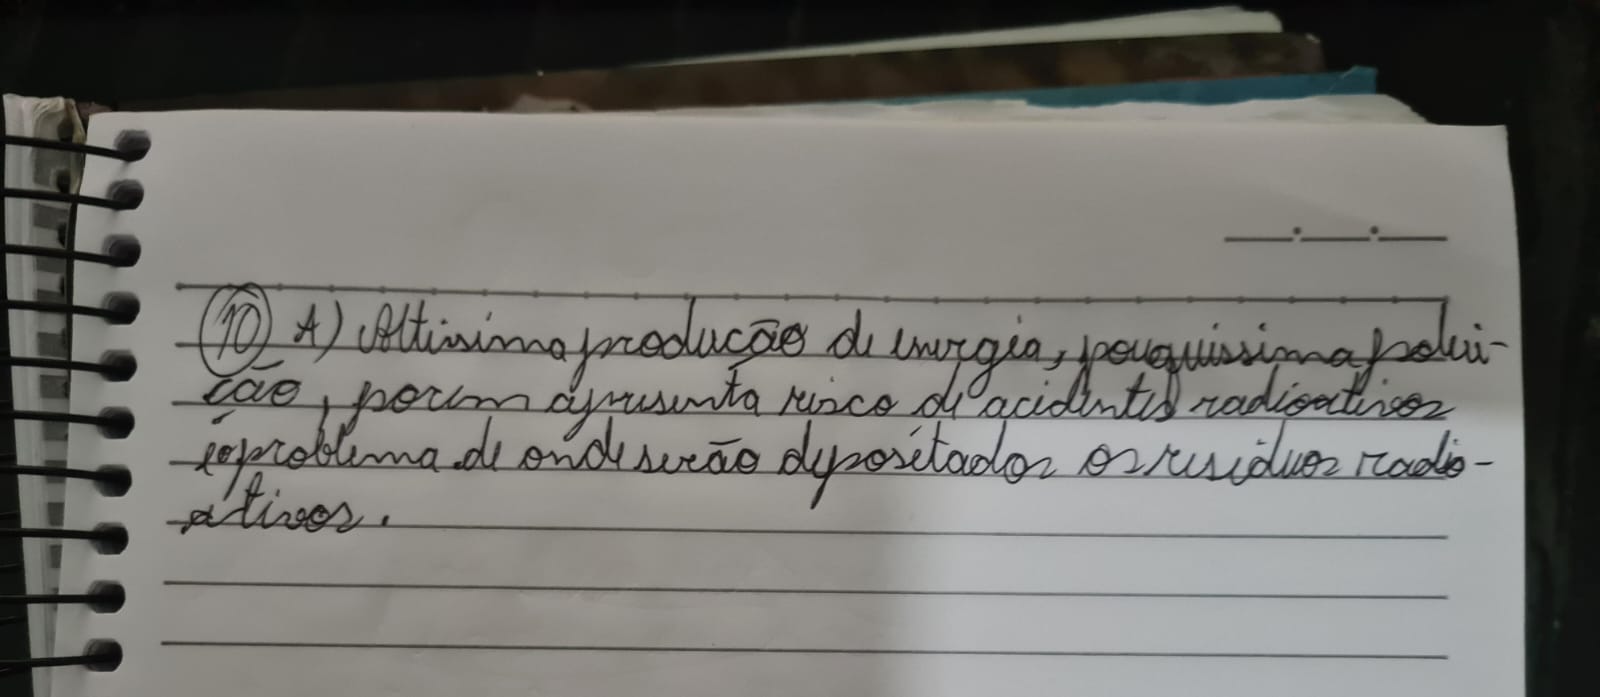 10 A) Altissima produção de energia, pouquissima polui-
ção, porem apresenta risco de acidentes radioativos
e o problema de onde serão depositados os residuos radio-
ativos.